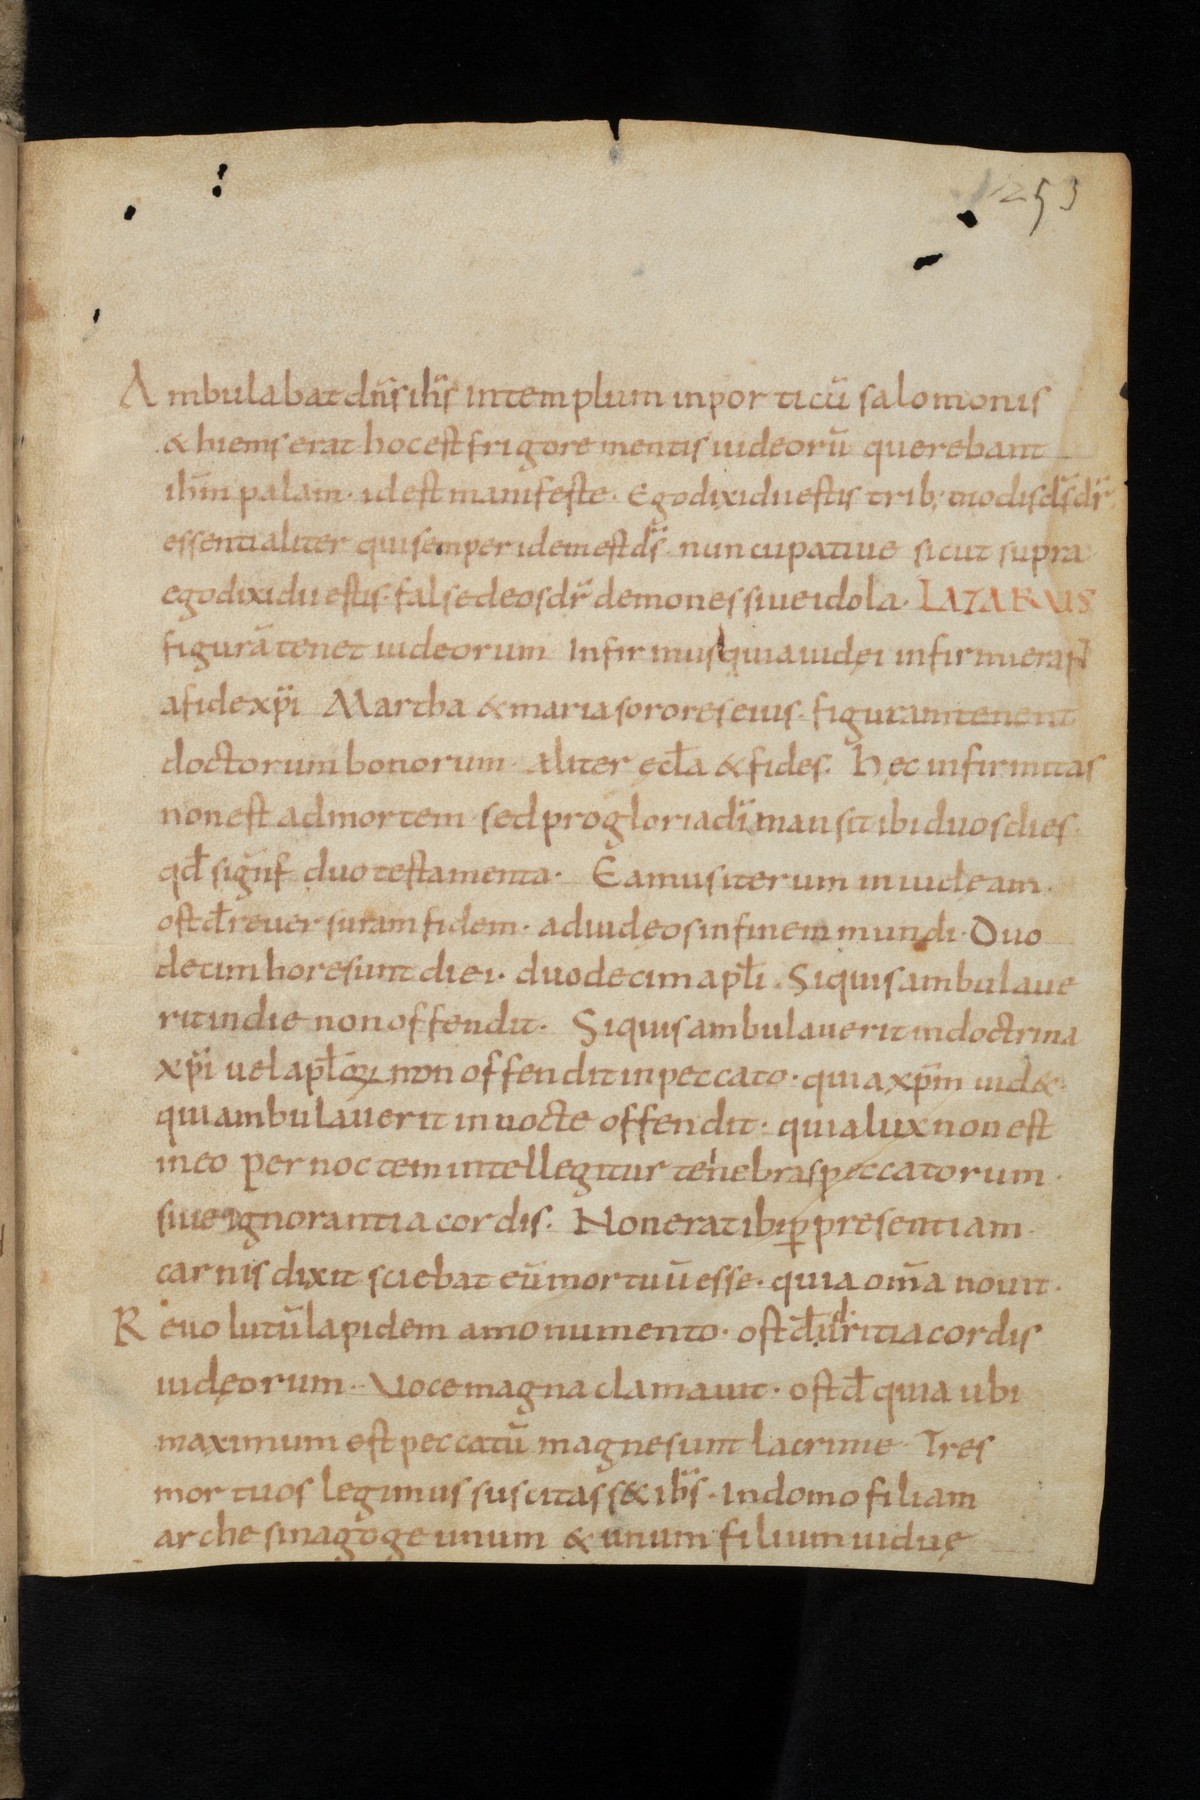 253
Ambulabat dn̄s ih̄s in templum in porticū salomonis
& hiems erat hoc est frigore mentis iudeorū querebant
ih̄m palam · id est manifeste · Ego dixi dii estis trib; modis d̄s dr̄
essentialiter qui semper idem est d̄s nuncupatiue sicut supra
ego dixi dii estis · false deos dr̄ demones siue idola · LAZARUS
figurā tenet iudeorum Infirmus quia iudei infirmi erant
a fide xp̄i Martha & maria sorores eius · figuram tenent
doctorum bonorum aliter ęcl̄a & fides · Hęc infirmitas
non est ad mortem sed pro gloria dī mansit ibi duos dies ·
qd̄ signf̄ duo testamenta · Eamus iterum in iudeam ·
ostd̄ reuersuram fidem · ad iudeos in finem mundi · Duo
decim hore sunt diei · duodecim apl̄i · Si quis ambulaue
rit in die non offendit · Si quis ambulauerit in doctrina
xp̄i uel aplōꝝ non offendit in peccato · quia xp̄m uid&
qui ambulauerit in nocte offendit · quia lux non est
in eo per noctem intellegitur tenebras peccatorum ·
siue ignorantia cordis · Non erat ibi ꝑ presentiam
carnis dixit sciebat eū mortuū esse · quia om̄a nouit ·
Reuolutū lapidem a monumento · ostd̄ duritia cordis
iudęorum · Voce magna clamauit · ostd̄ quia ubi
maximum est peccatū magne sunt lacrime Tres
mortuos legimus suscitass& ih̄s · In domo filiam
arche sinagoge unum & unum filium uiduę